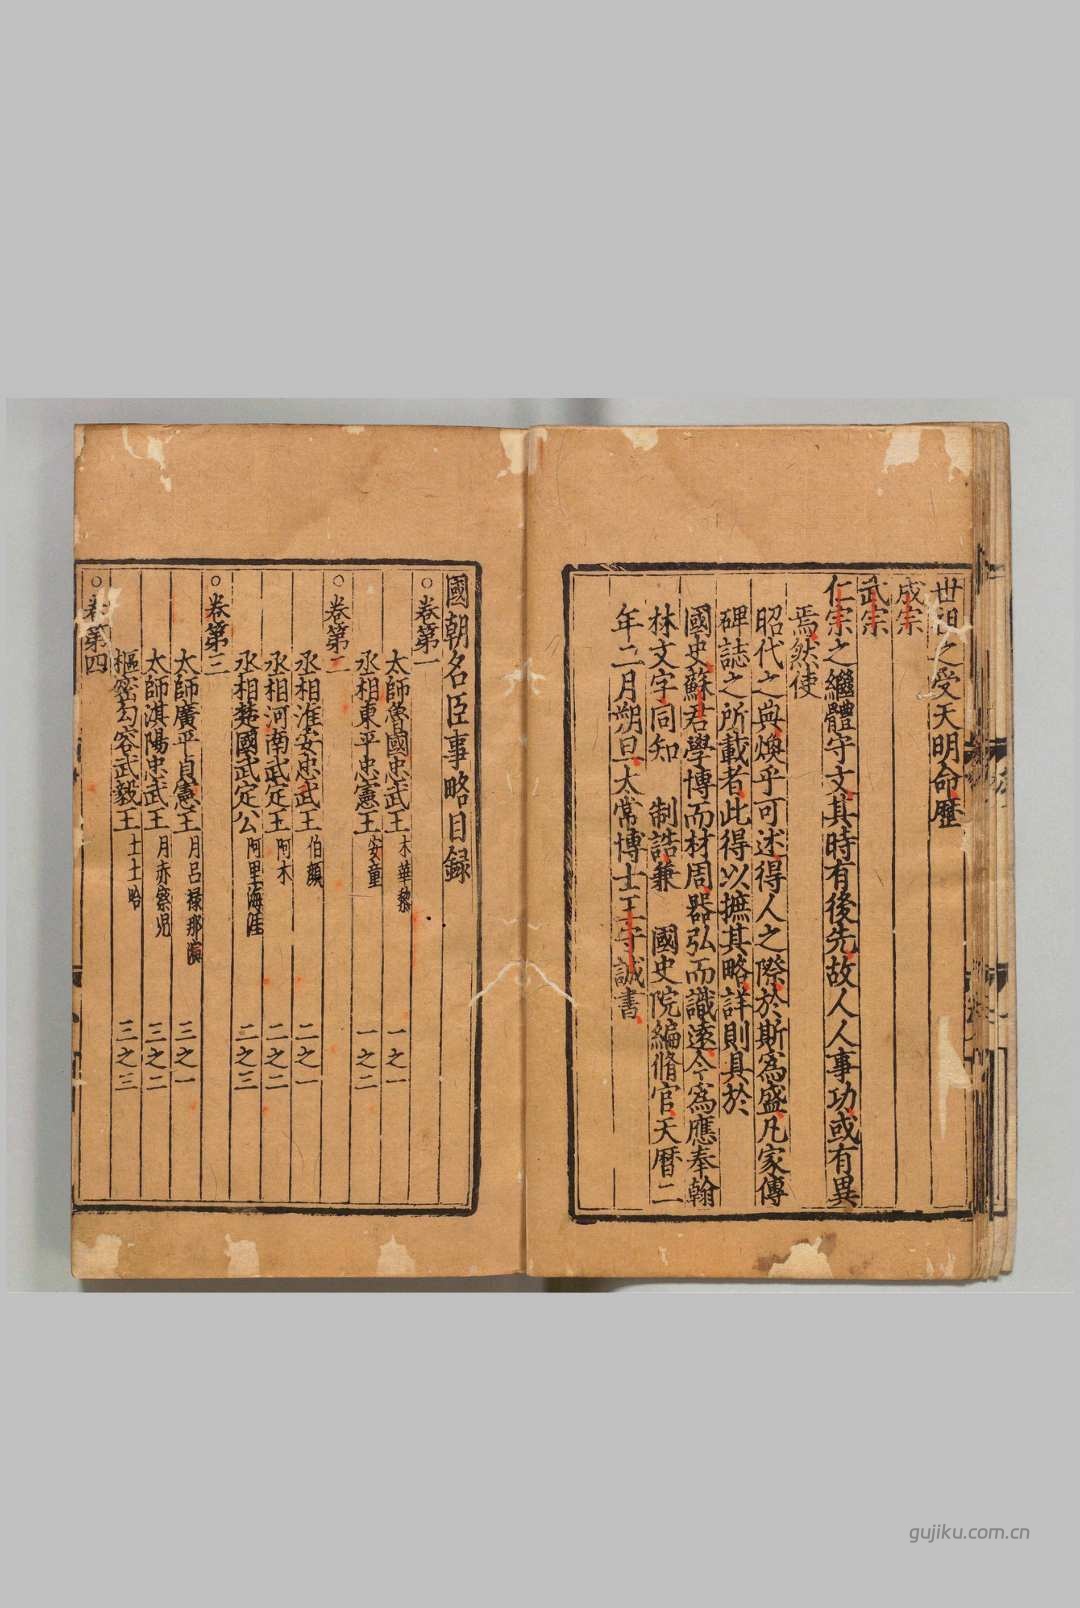 世祖之受天明命歷
成宗
武宗
仁宗之繼體守文其時有後先故人人事功或有異
焉然使
昭代之典煥乎可述得人之際於斯為盛凡家傳
碑誌之所載者此得以摭其略詳則具於
國史蘇君學博而材周器弘而識遠今為應奉翰
林文字同知 制誥兼 國史院編脩官天曆二
年二月朔旦太常博士王守誠書
國朝名臣事略目録
○卷第一
太師魯國忠武王 木華黎 一之一
丞相東平忠憲王 安童 一之二
○卷第二
丞相淮安忠武王 伯顔 二之一
丞相河南武定王 阿术 二之二
丞相楚國武定公 阿里海涯 二之三
○卷第三
太師廣平貞憲王 月呂禄那演 三之一
太師淇陽忠武王 月赤察兒 三之二
樞密勾容武毅王 土土哈 三之三
○卷第四
gujiku.com.cn